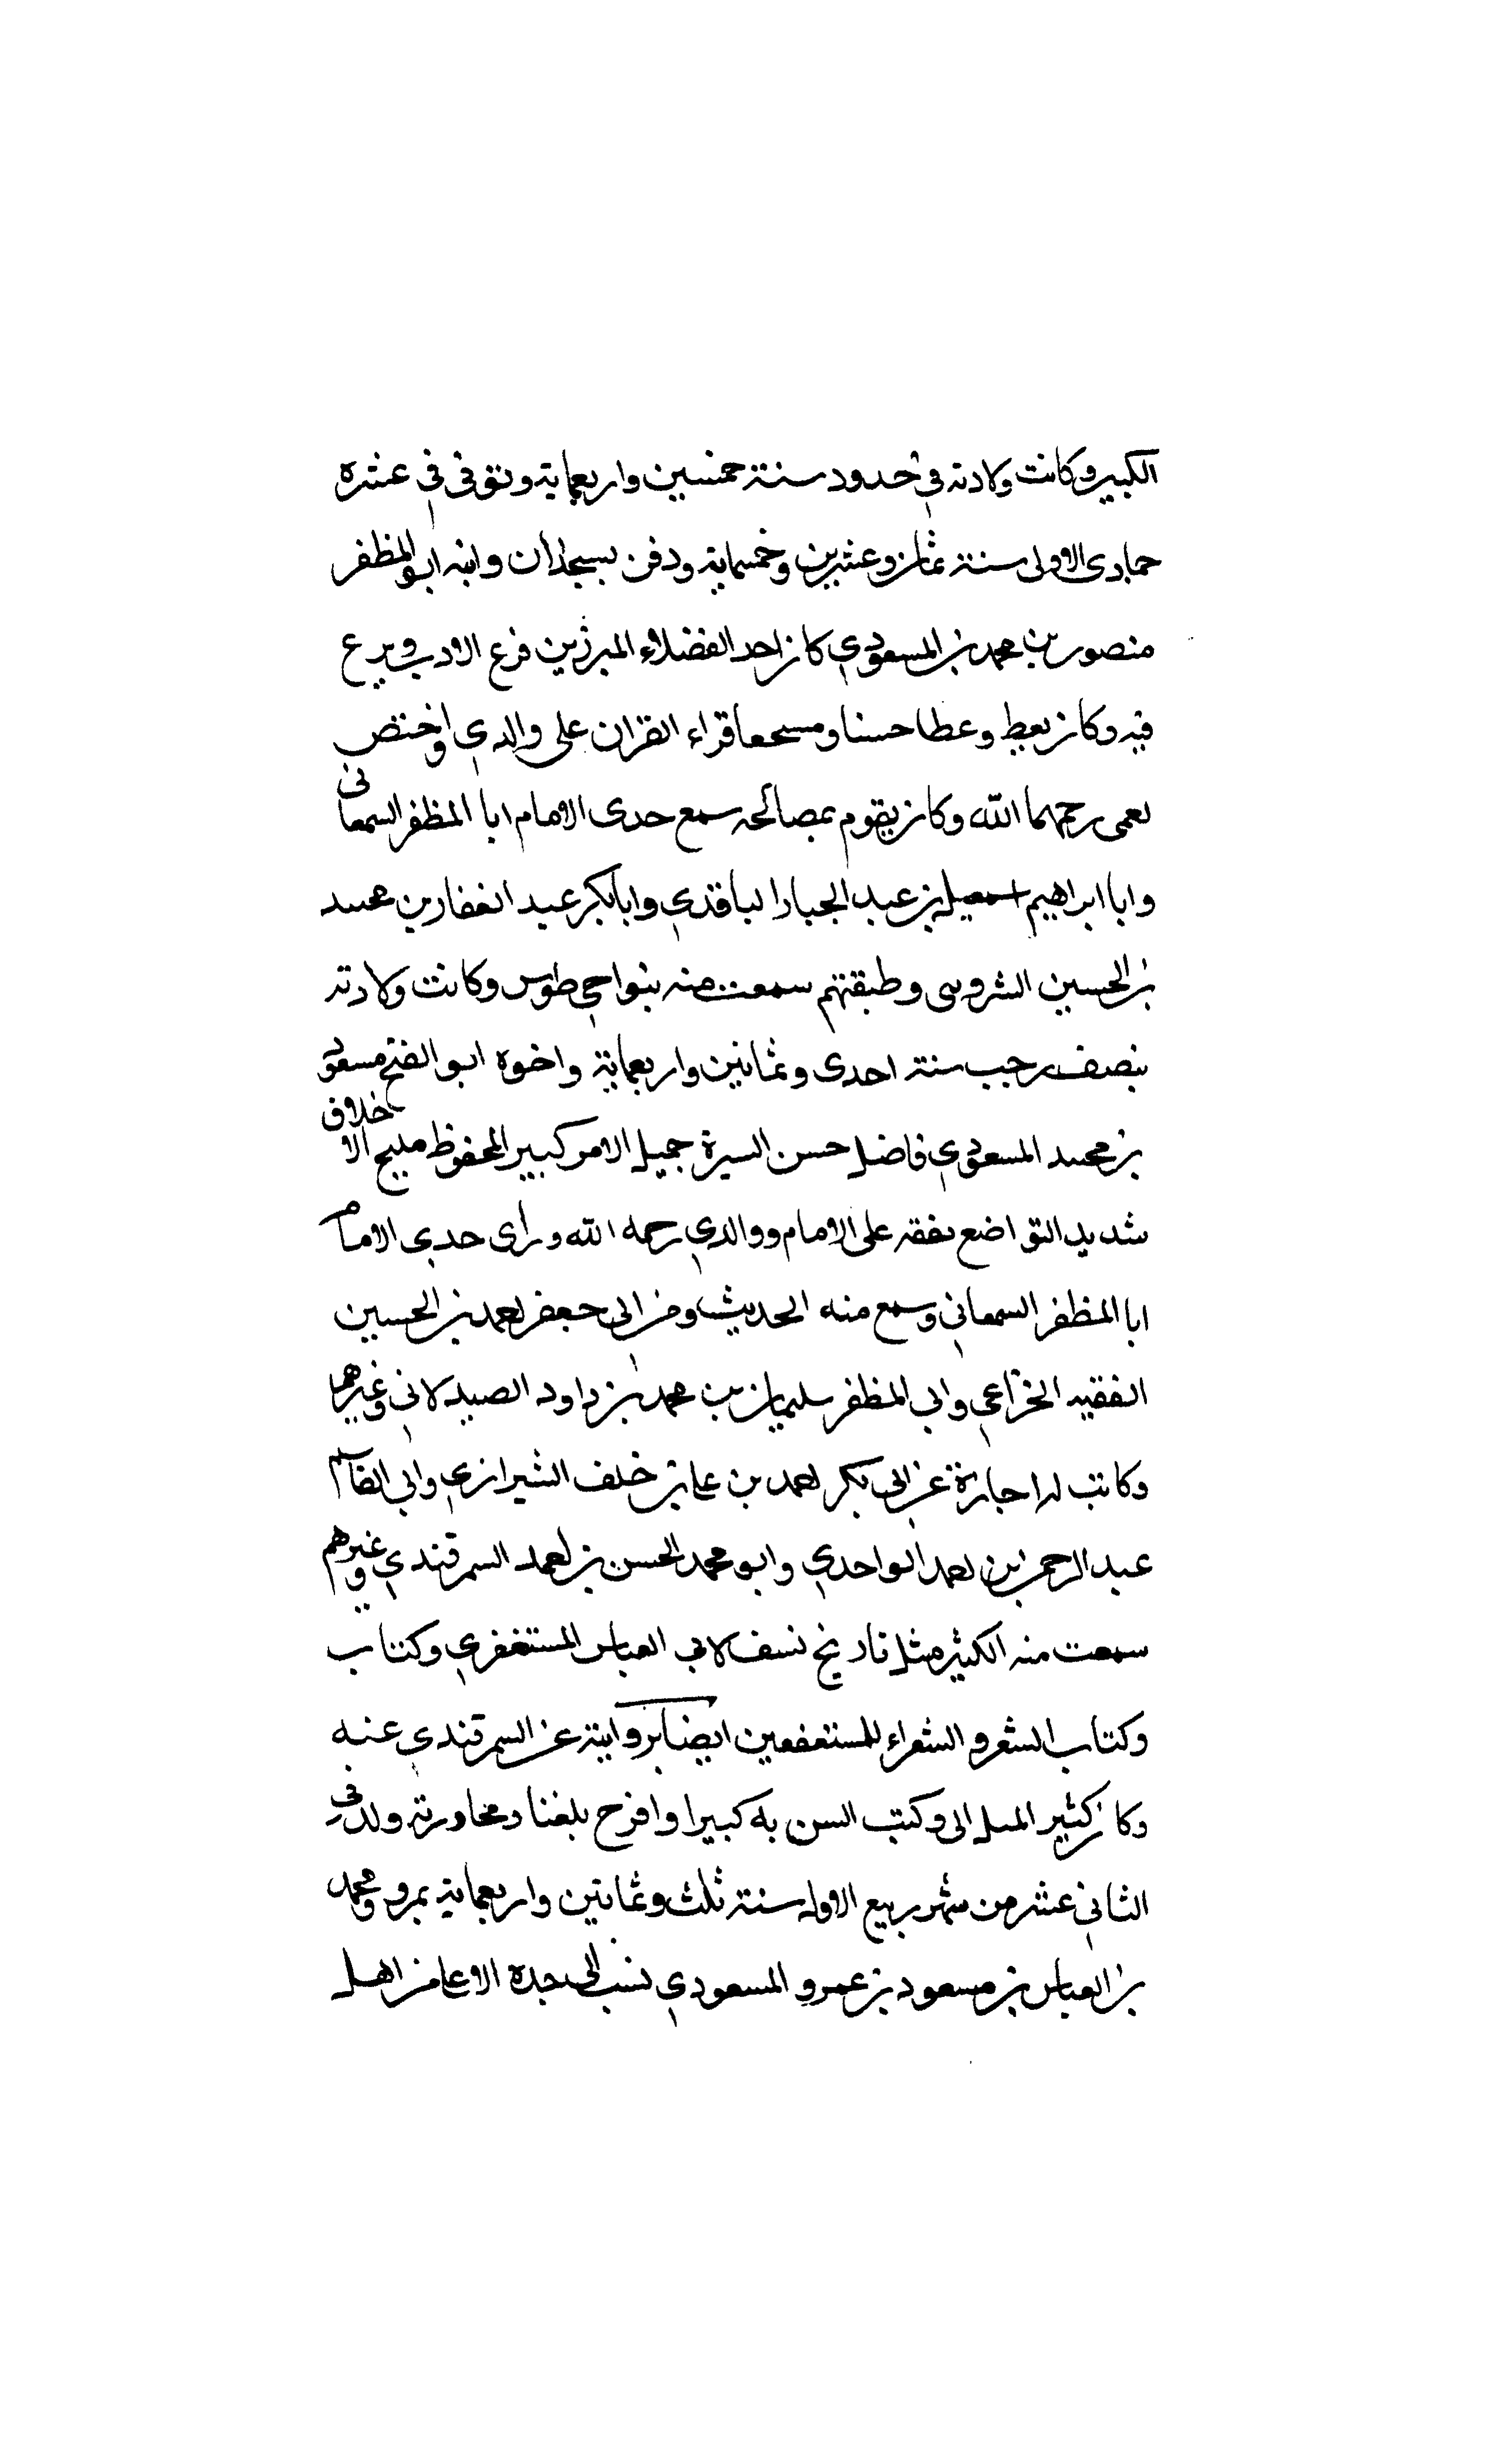 الكبير وكانت ولادته في حدود سنة خمسين واربعماية وتوفى في عشره
جمادى الاولى سنة ثمان وعشرين وخمسماية ودفن بسجدان وابنه ابو المظفر
منصور بن محمد بن المسعودي كان احد الفضلاء المبرزين قرع الادب وبرع
فيه وكان يعظ وعطا حسنا ومسجعا قراء القران على والدي واختص
بعمى رحمهما الله وكان يقوم بمصالحه سمع جدى الامام ابا المظفر السمعانى
وابا ابراهيم اسمعيل بن عبد الجبار الباقدي وابا بكر عبد الغفار بن محمد
بن الحسين الشروبى وطبقتهم سمعت منه بنواحي طوس وكانت ولادته
بنصف رجب سنة احدى وثمانين واربعماية واخوه ابو الفتح مسعود
بن محمد المسعودي فاضل حسن السيرة جميل الامر كبير المحفوظ مليح الاخلاق
شديد التواضع تفقه على الامام ووالدي رحمه الله وراى جدي الامام
ابا المظفر السمعاني وسمع منه الحديث ومن ابى جعفر احمد بن الحسين
الفقيه الخزاعي وابي المظفر سليمان بن محمد بن داود الصيدلاني وغيرهم
وكانت له اجازة عن ابى بكر احمد بن على بن خلف الشيرازي وابي القاسم
عبد الرحمن ابن احمد الواحدي وابو محمد الحسن بن احمد السمرقندي وغيرهم
سمعت منه الكثير مثل تاريخ نسف لابي العباس المستغفري وكتاب
وكتاب الشعر و الشعراء للمستغفعين ايضا بروايته عن السمرقندي عنه
وكان كثير الميل الى وكتب السن به كبيرا وافرح بلغنا ومحاورته ولد فى
الثاني عشر من شهر ربيع الاول سنة ثلث وثمانين واربعماية بمرو ومحمد
بن العباس بن مسعود بن عمرو المسعودي نسب الى جده الاعلى من اهل